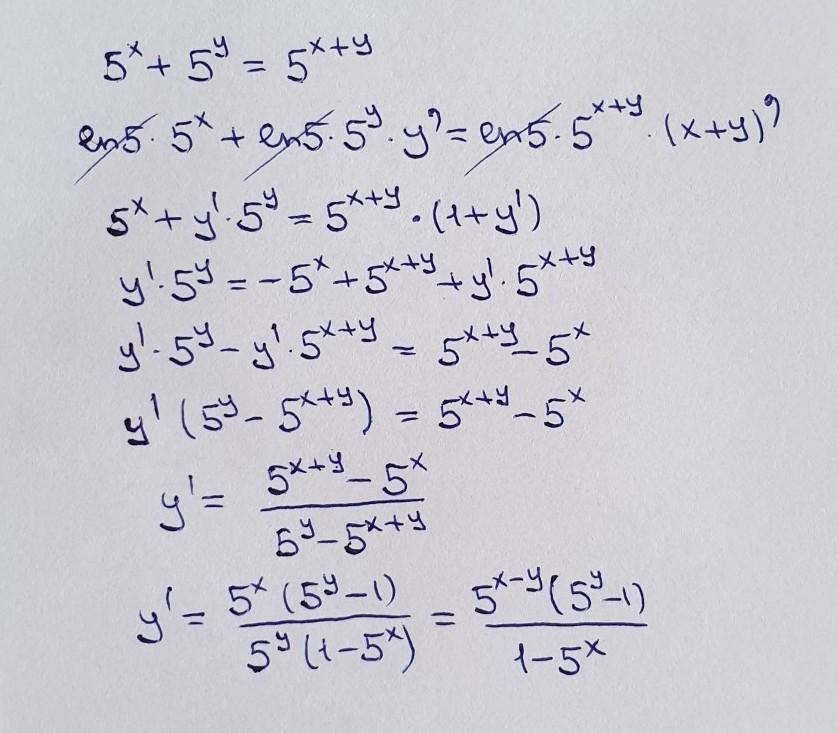 5^x + 5^y = 5^{x+y}
ln5 · 5^x + ln5 · 5^y · y' = ln5 · 5^{x+y} · (x+y)'
5^x + y' · 5^y = 5^{x+y} · (1+y')
y' · 5^y = -5^x + 5^{x+y} + y' · 5^{x+y}
y' · 5^y - y' · 5^{x+y} = 5^{x+y} - 5^x
y' (5^y - 5^{x+y}) = 5^{x+y} - 5^x
y' = \frac{5^{x+y} - 5^x}{5^y - 5^{x+y}}
y' = \frac{5^x (5^y - 1)}{5^y (1 - 5^x)} = \frac{5^{x-y} (5^y - 1)}{1 - 5^x}